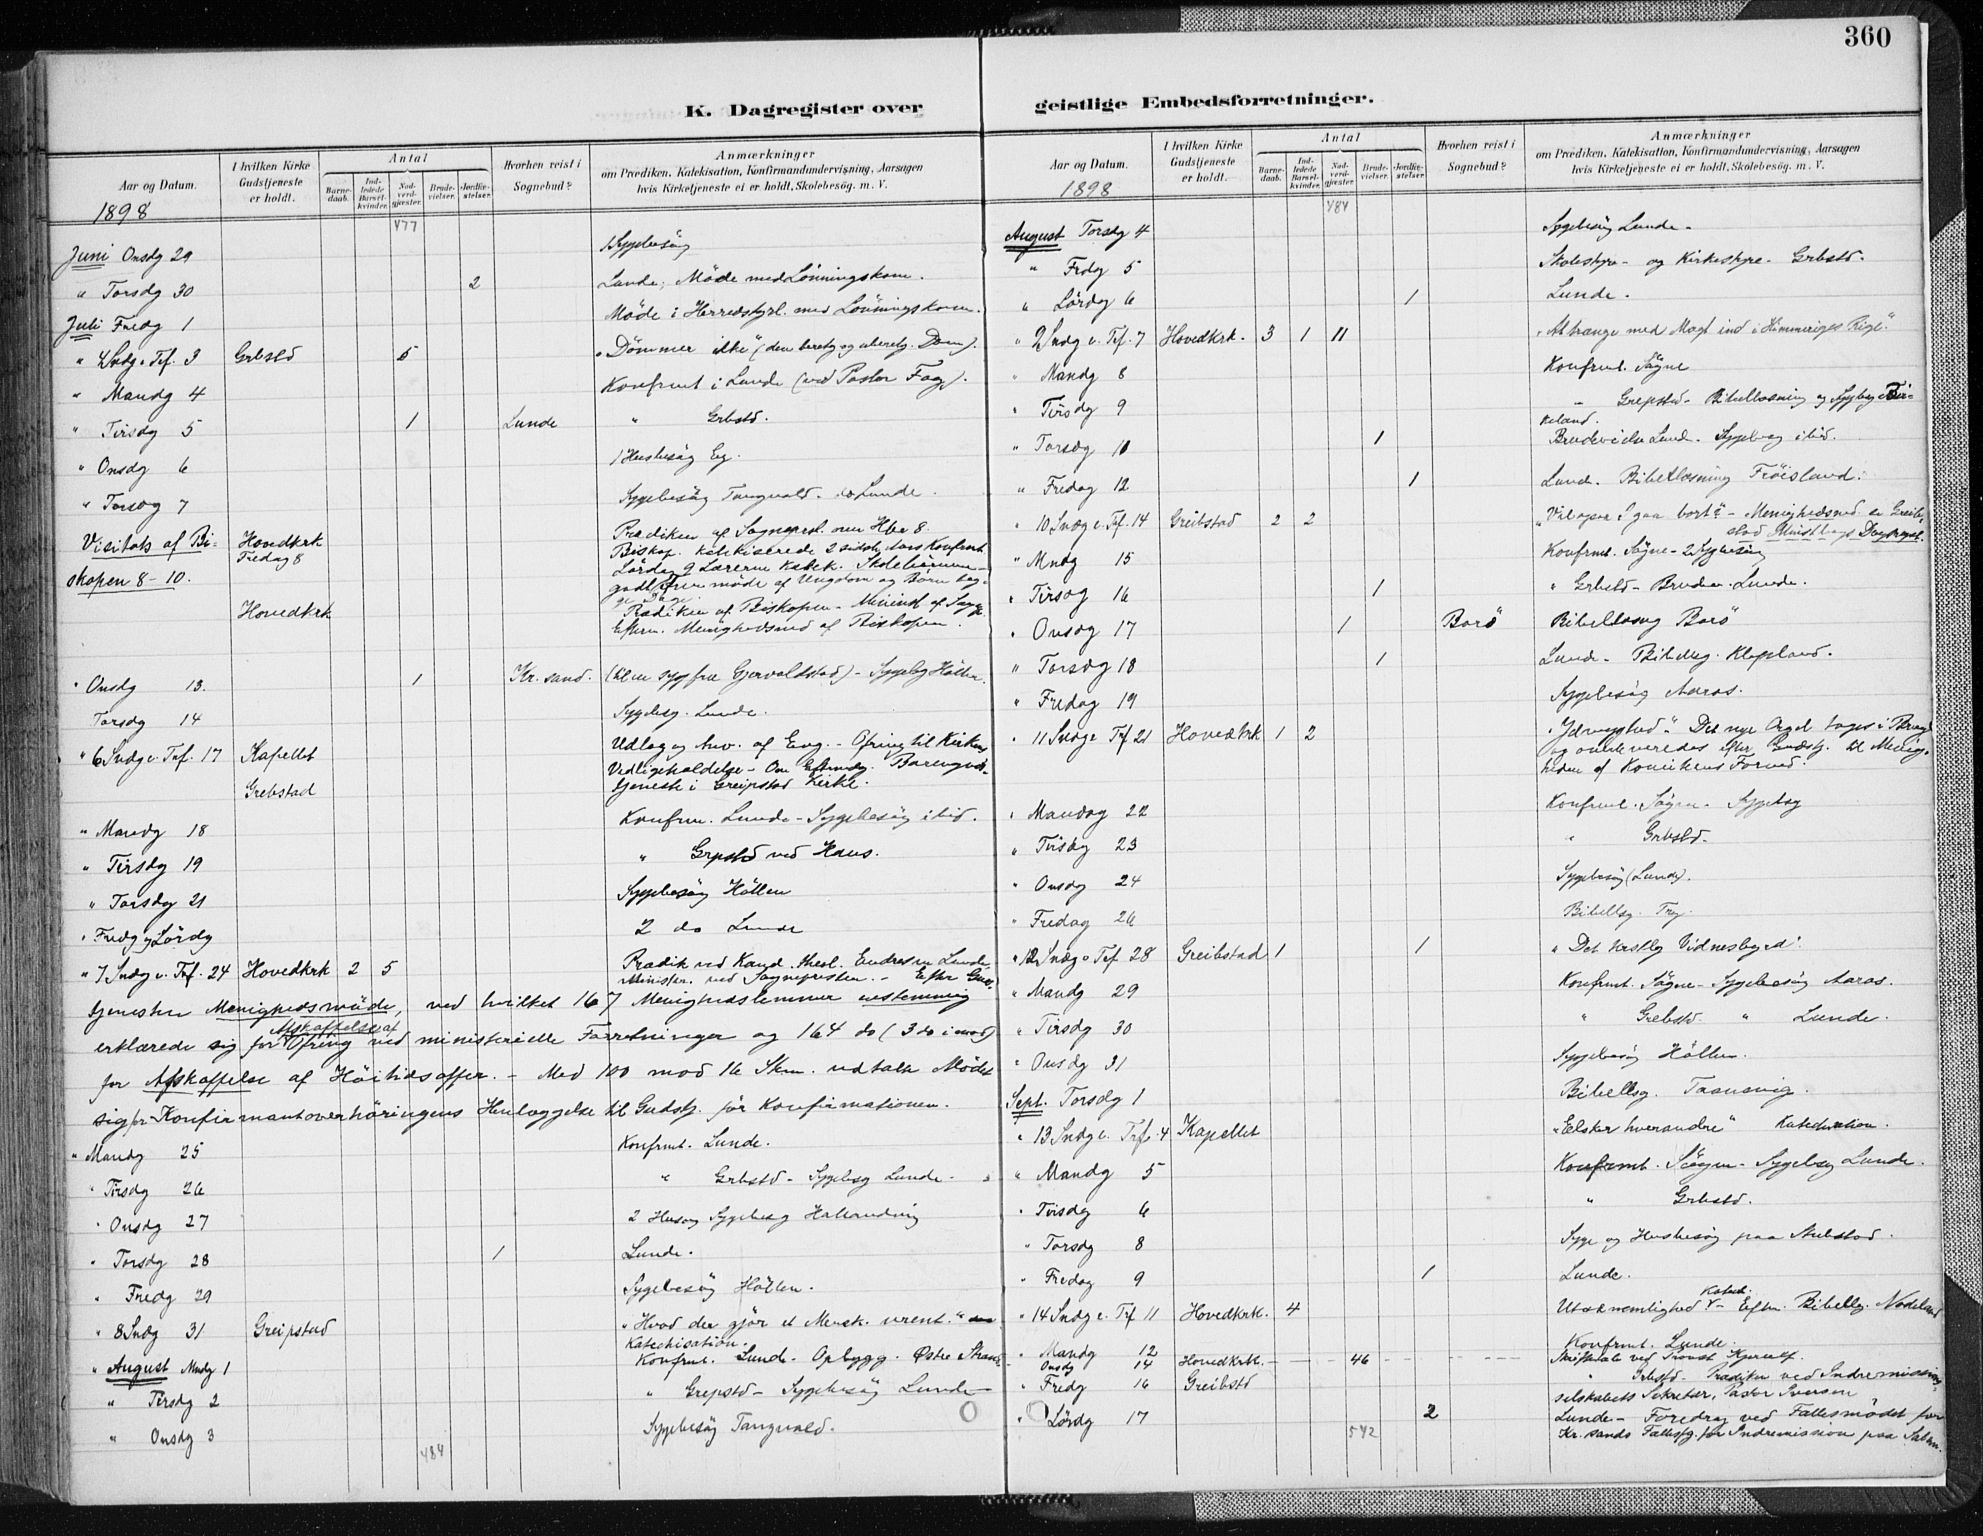 360
K. Dagregister over
Aar og Datum.
I hvilken Kirke Gudstjeneste er holdt.
Antal
Barne-daab.
Ind-ledede Barsel-kvinder.
Nad-verd-gjæster.
Brude-vielser.
Jordfæ-stelser.
Hvorhen reist i Sognebud?
Anmærkninger
om Prædiken, Katekisation, Konfirmandundervisning, Aarsagen
hvis Kirketjeneste ei er holdt, Skolebesög. m. V.
1898
477
Juni Onsdg 29 1 Sygebesög
" Torsdg 30 2 Lunde; Möde med Lönningskom.
Juli Fredg 1 Möde i Herredstyrl. med Lönningskom.
" Sndg. Tref. 3 Grbstd 5 "Dömmer ikke" (den beretg og uberetg. Dom).
" Mandg 4 Konfrmt i Lunde (ved Pastor Fog).
" Tirsdg 5 1 Lunde " Grbstd.
" Onsdg 6 1 Husbesög Eg.
" Torsdg 7 Sygebesög Tangvald. do Lunde.
Visitats af Bi-
skopen 8-10.
Hovedkrk
Fredag 8
Prædiken af Sogneprst. over Hbr 8.
Biskop. katekiserede 2 sidste Aars Konfrmt
Lördag 9 Lærerne katek.
möde af Ungdom og Börn
Hovedkrk
Prædiken af Biskopen - Minist. af Sogn.
Eftrm. Menighedsmöd af Biskopen.
" Onsdg 13. 1 Kr.sand. Sygebsg Höllen.
Torsdg 14 Sygebsg. Lunde.
" 6 Sndg e. Tref. 17 Kapellet Udlæg og Anv. af Evg. - Ofring til Kirkens
Vedligeholdelse - Om Eftmdg. Barnegud-
Grebstad tjeneste i Greipstad Kirke.
" Mandg 18 Konfrm. Lunde - Sygebesög ibid.
" Tirsdg 19 " Grpstd ved Haus.
" Torsdg 21 Sygebesög Höllen
" Fredg og Lördg 2 do Lunde
" 7 Sndg e. Tref. 24 Hovedkrk 2 5 Prædik ved Kand. theol. Endresen Lunde,
Minister. ved Sognepresten. - Efter Gud-
tjenesten Menighedsmöde, ved hvilket 167 Menighedslemmer enstemmig
erklærede sig for Afskaffelse af Ofring ved ministerielle Forretninger og 164 do (3 do imod)
for Afskaffelse af Höitidsoffer. - Med 100 mod 16 Stm. udtalte Mödet
sig for Konfirmantoverhöringens Henlæggelse til Gudstj. för Konfirmationen.
" Mandg 25 Konfrmt. Lunde.
" Tirsdg 26 " Grbstd - Sygebsg Lunde.
" Onsdg 27 2 Hus og Sygebesg
" Torsdg 28 1 Lunde.
" Fredg 29 Sygebesög Höllen.
" 8 Sndg 31 Greipstad "Hvad der gjör et Mensk. urent."
Katechisation.
" August Mndg 1 Konfrmt. Lunde - Opbygg. Østre
" Tirsdg 2 " Grepstd - Sygebesög Lunde
" Onsdg 3 Sygebesög Tangvald.
484
geistlige Embedsforretninger.
Aar og Datum.
I hvilken Kirke Gudstjeneste er holdt.
Antal
Barne-daab.
Ind-ledede Barsel-kvinder.
Nad-verd-gjæster.
Brude-vielser.
Jordfæ-stelser.
Hvorhen reist i Sognebud?
Anmærkninger
om Prædiken, Katekisation, Konfirmandundervisning, Aarsagen
hvis Kirketjeneste ei er holdt, Skolebesög. m. V.
1898
484
August Torsdg 4 Sygebesög Lunde -
" Frdg 5 Skolestyre- og Kirkestyre- Grbstd.
" Lördg 6 1 Lunde.
" 9 Sndg e. Tref. 7 Hovedkrk. 3 1 11 "At trænge med Magt ind i Himmeriges Rige."
" Mandg 8 Konfrmt. Sögne
" Tirsdg 9 " Grepstad - Bibellæsning og Sygbsg Bir-
keland.
" Torsdg 10 1 Brudevielse Lund. Sygebsg ibid.
" Fredag 12 1 Lund. Bibellæsning Fröisland.
" 10 Sndg e. Tref. 14 Greibstad 2 2 "Vil ogsaa I gaa bort?" - Menighedsmöd
" Mndg 15 Konfrmt. Sögne - 2 Sygebesög
" Tirsdg 16 1 " Grbstd - Brudev. Lunde.
" Onsdg 17 1 Borö Bibellæsng Borö
" Torsdg 18 1 Lunde - Klepland.
" Fredag 19 Sygebesög Aaros.
" 11 Sndg e Tref 21 Hovedkrk 1 2 "Ydmyghed". Det nye Orgel toges i Brug
og overleveredes efter Gudstj. til Menig-
heden af Komiteens Formd.
" Mandag 22 Konfrmt. Sögne. Sygebsg
" Tirsdg 23 " Grbstd.
" Onsdg 24 Sygebesög (Lunde).
" Fredag 26 Bibellsg. Try.
" 12 Sndg e Tref 28 Greibstad 1 1 "Det kristlg Vidnesbyrd".
" Mandg 29 Konfrmt. Sögne - Sygebesög Aaros.
" Tirsdg 30 " Grebstd. " Lunde.
" Onsdg 31 Sygebesög Höllen.
Sept. Torsdg 1 Bibellsg. Taanevig.
" 13 Sndg e. Tref. 4 Kapellet "Elsker hverandre" Katechisation.
" Mandg 5 Konfrmt. Sögne - Sygebsg Lunde.
" Tirsdg 6 " Grbstd.
" Torsdg 8 Syge og Husbesög paa Stubstad.
" Fredag 9 1 Lunde.
" 14 Sndg e. Tref 11 Hovedkrk. 4 Utaknemlighed Katech. - Eftm. Bibellg. Nodeland
" Mandg 12 Konfrmt. Lunde.
Onsdg 14 Hovedkrk. 46 Skriftetale ved Provst
" Fredg 16 Greibstd " Grbstd - Prædiken ved Indremissions-
selskabets Sekretær, Pastor Iversen
" Lördg 17 2 Lunde - Foredrag ved Fællesmödet for
542 Kr.sands Fællesfg. for Indremission paa